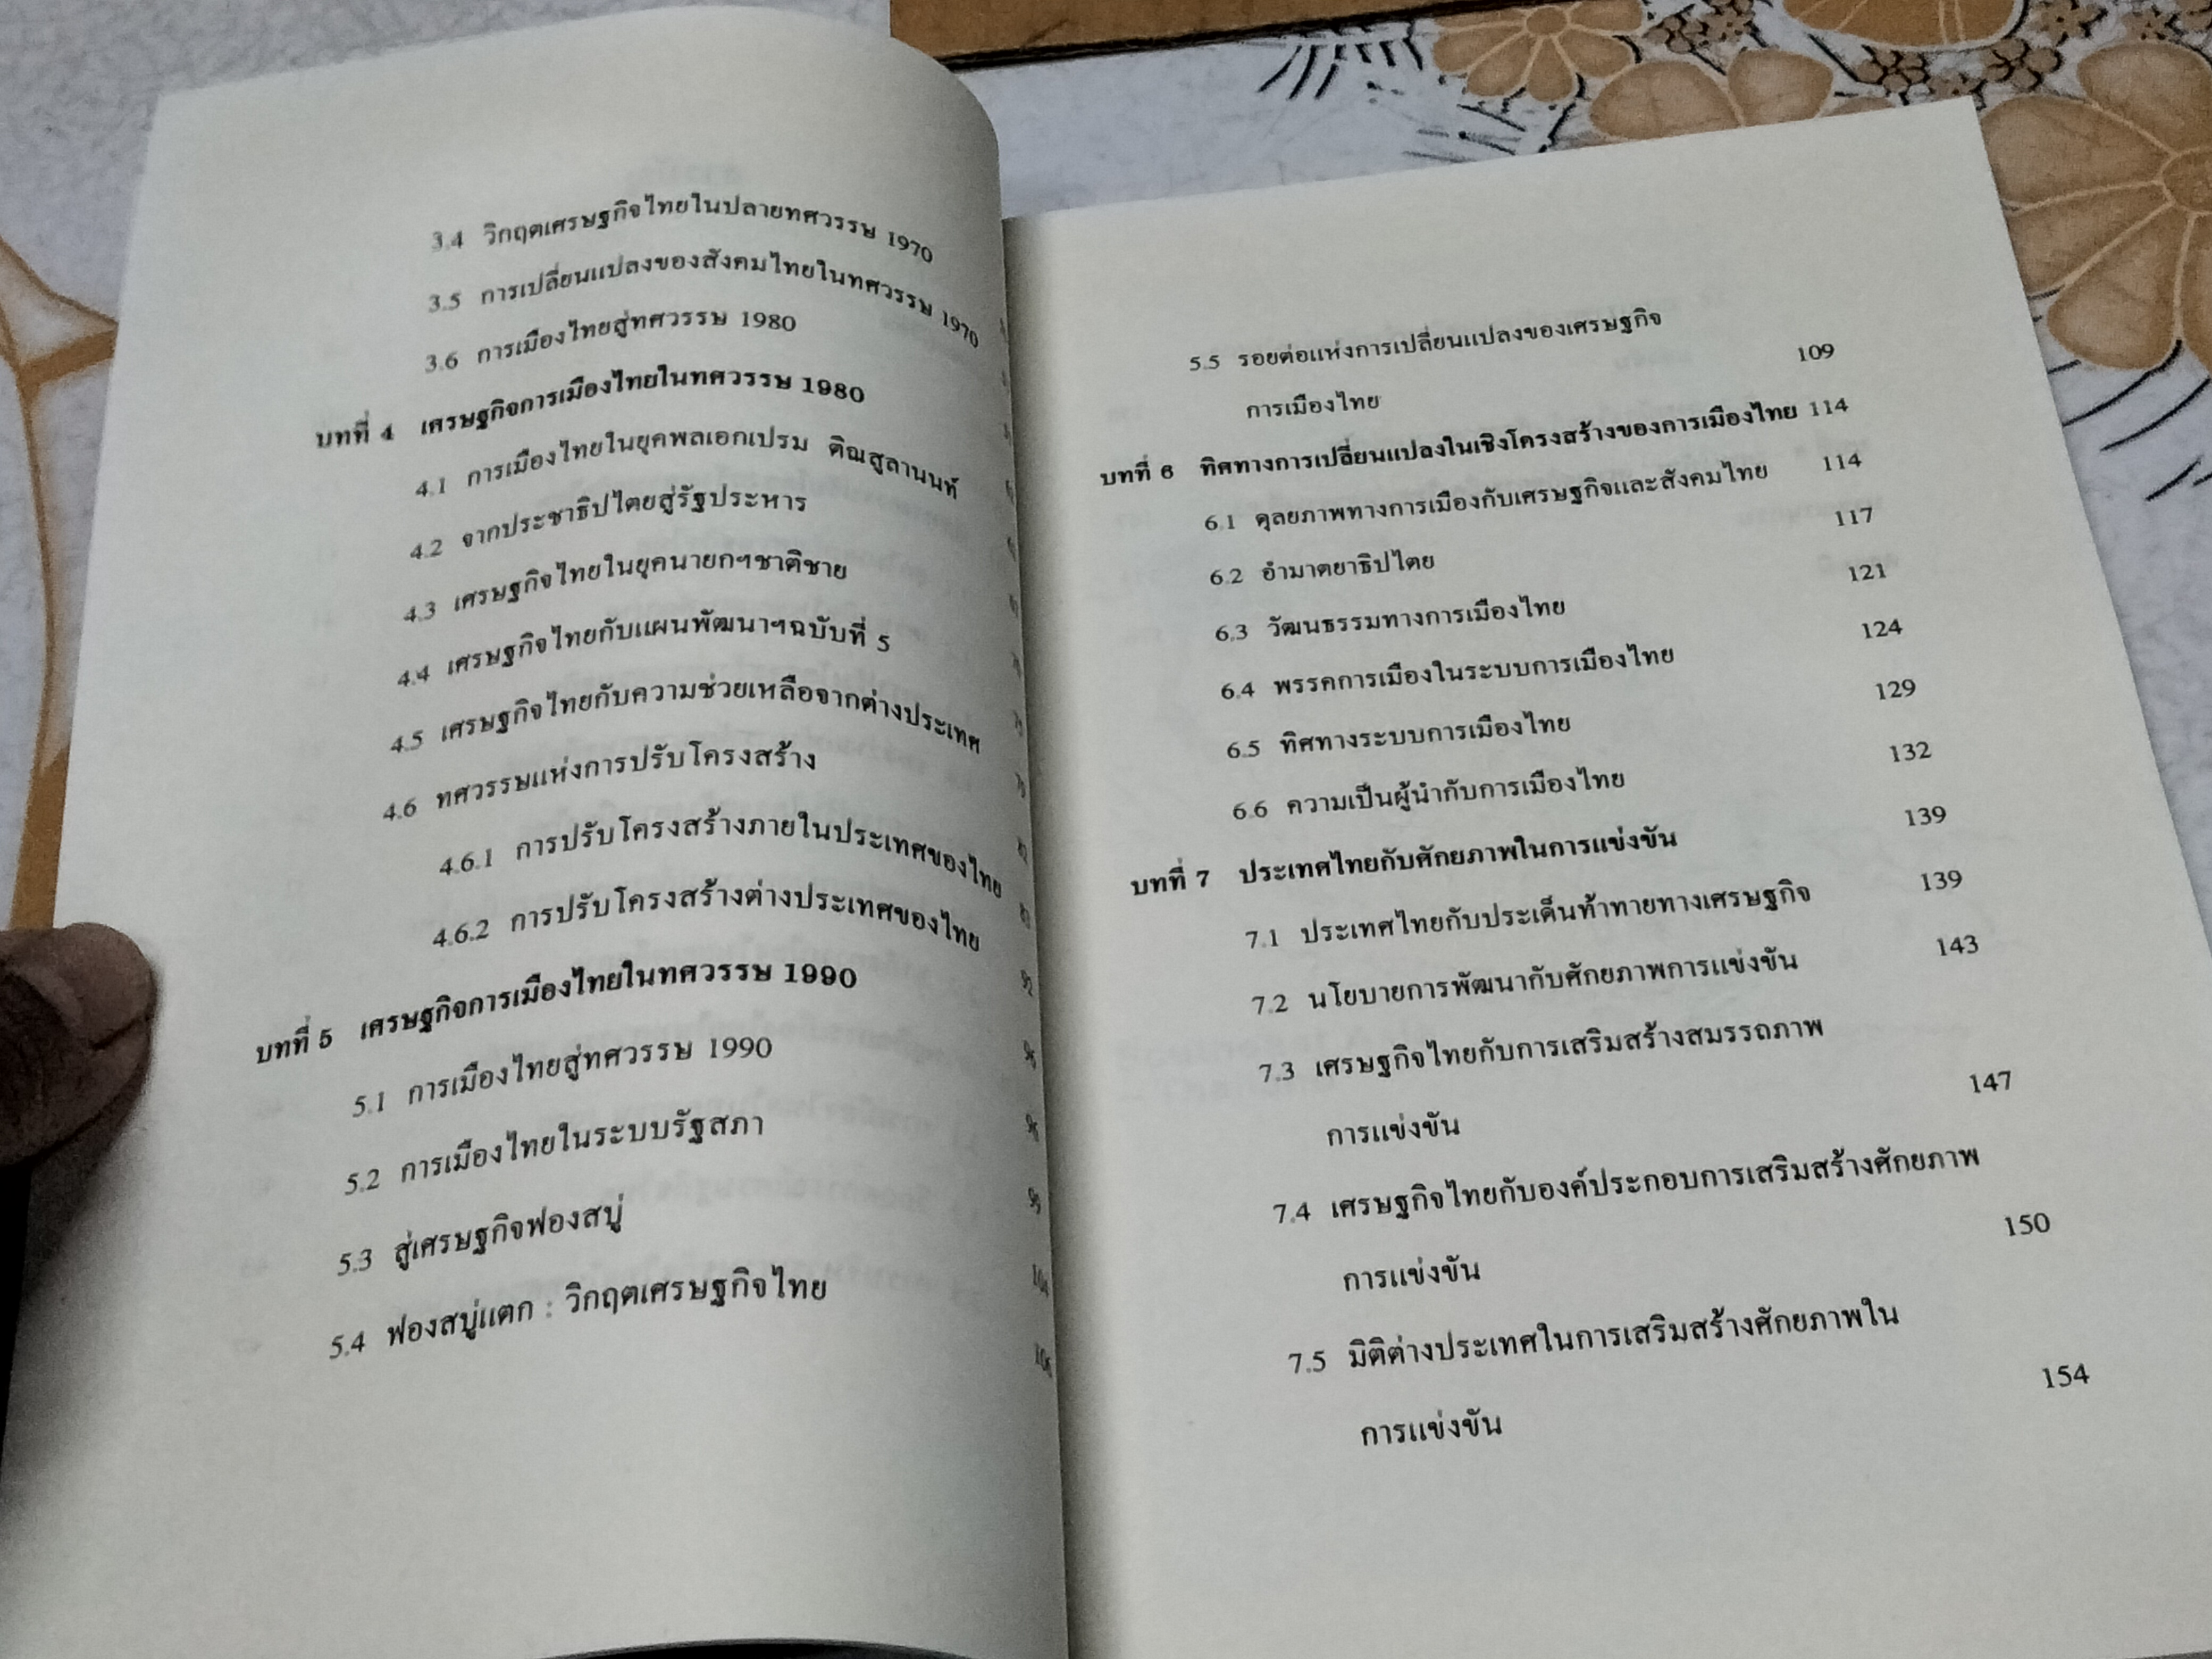 3.4 วิกฤตเศรษฐกิจไทยในปลายทศวรรษ 1970
3.5 การเปลี่ยนแปลงของสังคมไทยในทศวรรษ 1970
3.6 การเมืองไทยสู่ทศวรรษ 1980
บทที่ 4 เศรษฐกิจการเมืองไทยในทศวรรษ 1980
4.1 การเมืองไทยในยุคพลเอกเปรม ติณสูลานนท์
4.2 จากประชาธิปไตยสู่รัฐประหาร
4.3 เศรษฐกิจไทยในยุคนายกฯชาติชาย
4.4 เศรษฐกิจไทยกับแผนพัฒนาฯฉบับที่ 5
4.5 เศรษฐกิจไทยกับความช่วยเหลือจากต่างประเทศ
4.6 ทศวรรษแห่งการปรับโครงสร้าง
4.6.1 การปรับโครงสร้างภายในประเทศของไทย
4.6.2 การปรับโครงสร้างต่างประเทศของไทย
บทที่ 5 เศรษฐกิจการเมืองไทยในทศวรรษ 1990
5.1 การเมืองไทยสู่ทศวรรษ 1990
5.2 การเมืองไทยในระบบรัฐสภา
5.3 สู่เศรษฐกิจฟองสบู่
5.4 ฟองสบู่แตก : วิกฤตเศรษฐกิจไทย
5.5 รอยต่อแห่งการเปลี่ยนแปลงของเศรษฐกิจ
การเมืองไทย 109
บทที่ 6 ทิศทางการเปลี่ยนแปลงในเชิงโครงสร้างของการเมืองไทย 114
6.1 ดุลยภาพทางการเมืองกับเศรษฐกิจและสังคมไทย 114
6.2 อำมาตยาธิปไตย 117
6.3 วัฒนธรรมทางการเมืองไทย 121
6.4 พรรคการเมืองในระบบการเมืองไทย 124
6.5 ทิศทางระบบการเมืองไทย 129
6.6 ความเป็นผู้นำกับการเมืองไทย 132
บทที่ 7 ประเทศไทยกับศักยภาพในการแข่งขัน 139
7.1 ประเทศไทยกับประเด็นท้าทายทางเศรษฐกิจ 139
7.2 นโยบายการพัฒนากับศักยภาพการแข่งขัน 143
7.3 เศรษฐกิจไทยกับการเสริมสร้างสมรรถภาพ
การแข่งขัน 147
7.4 เศรษฐกิจไทยกับองค์ประกอบการเสริมสร้างศักยภาพ
การแข่งขัน 150
7.5 มิติต่างประเทศในการเสริมสร้างศักยภาพใน
การแข่งขัน 154